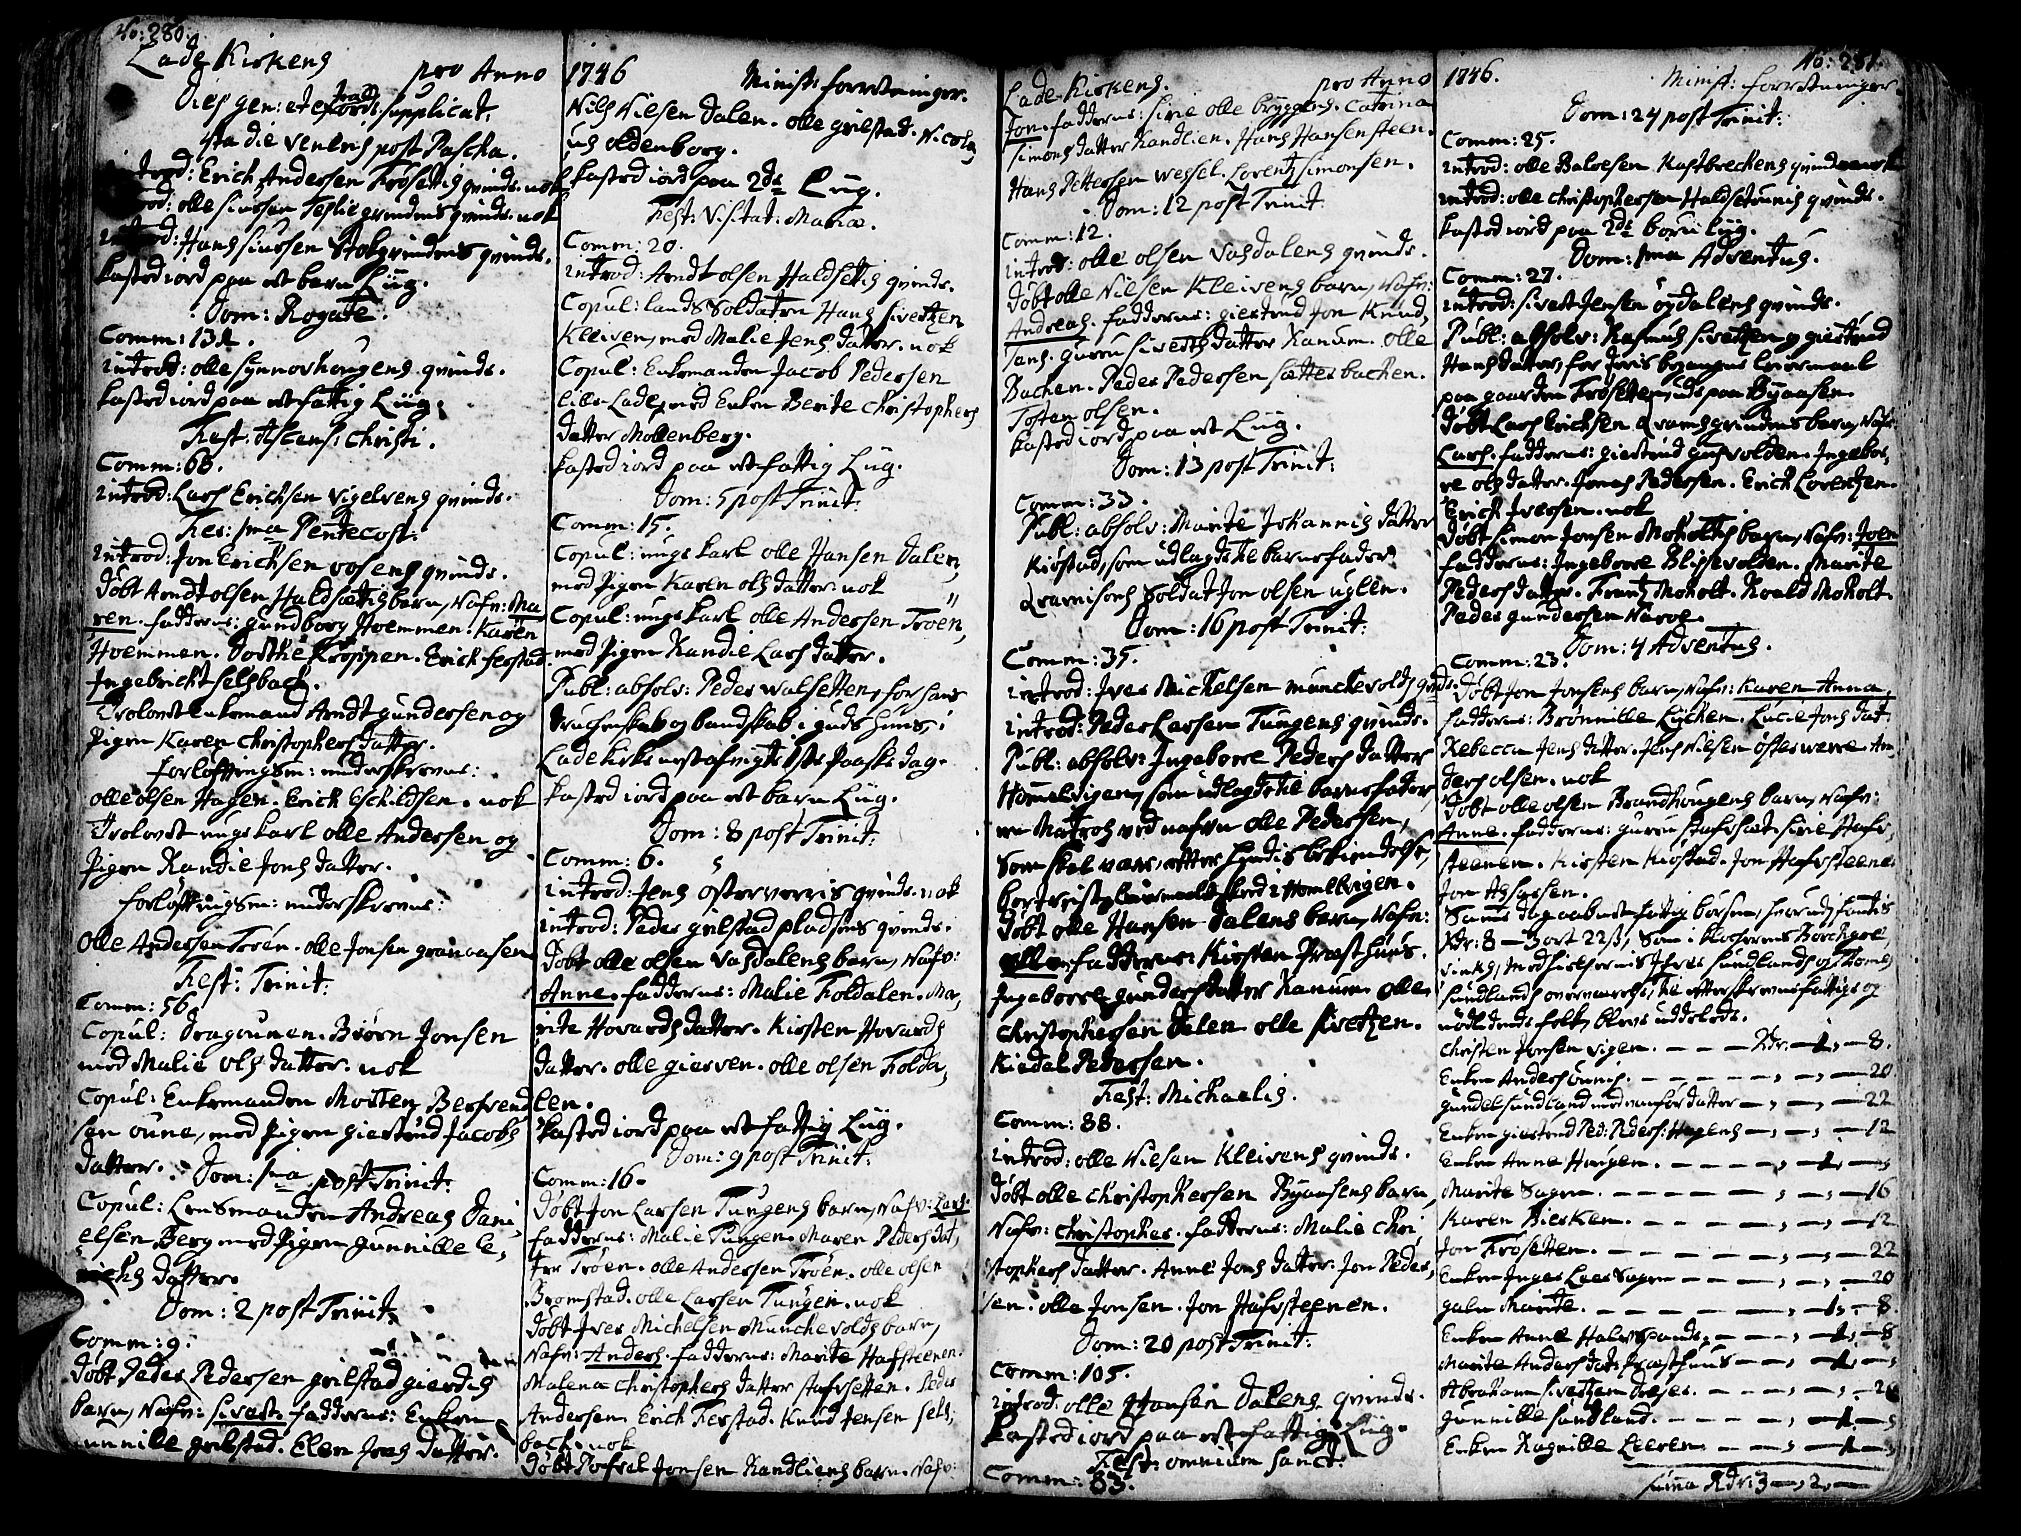 No: 280.
Lade Kirkens pro Anno
Dies gen: et extraord: supplicat.
4ta die Veneris post Pascha.
introd: Erich Andersen Frøsettis qvinde. nok
introd: olle siursen Teslie grindens qvinde. nok
introd: Hans siursen Stokgrindens qvinde.
kasted iord paa et barn Liig.
Dom: Rogate.
Comm: 132.
introd: olle synnovhougens qvinde.
kasted iord paa et fattig Liig.
Fest: Ascens: Christi.
Comm: 68.
introd: Lars Erichsen vigelvens qvinde.
Fer: 1ma Pentecost:
introd: Jon Erichsen vosens qvinde.
døbt Arndt olsen Haldsettis barn, Nafn: Ma
ren. fadderne: gundborg Hoemmen. Karen
Hoemmen. Dorthe Kroppen. Erich ferstad.
Ingebricht selsbach.
Trolovet Enkemand Arndt gundersen og
Pigen Karen Christophers datter.
forløftningsm: underskrevne:
olle olsen Hagen. Erich Eschildsen. nok
Trolovet ungekarl olle Andersen og
Pigen Randie Jons datter.
forløftningsm: underskrevne:
Olle Andersen Troen. olle Jonsen granaasen
Fest: Trinit:
Comm: 56.
Copul: dragounen. Biørn Jonsen
med Malie ols datter. nok
Copul: Enkemanden Morten Berhend
sen oune, med Pigen giertrud Jacobs
datter.
Dom: 1ma post Trinit:
Copul: Lensmanden Andreas Dani
elsen Berg med Pigen gunnille le,
richs datter.
Dom: 2 post Trinit.
Comm: 9.
døbt Peder Pedersen grilstad gierdes
barn, Nafn: sivert. fadderne: Enken
gunnille grilstad. Elen Jons datter.
1746 Minist: forretninger.
Nils Nilsen dalen. olle grilstad. Nicola,
us oldenborg.
kasted iord paa 2de Liig.
Fest: Visitat: Mariæ.
Comm: 20.
introd: Arndt olsen Haldsettis qvinde.
Copul: Lands Soldaten Hans sivertsen
Kleiven, med Malie Jens datter. nok
Copul: Enkemanden Jacob Pedersen
lille Lade, med Enken Berite Christophers
datter Mollenberg.
kasted iord paa et fattig Liig.
Dom: 5 post Trinit:
Comm: 15.
Copul: ungekarl olle Hansen dalen,
med Pigen Karen ols datter. nok
Copul: ungekarl olle Andersen Troen,
med Pigen Randie Lars datter.
Publ: absolv: Peder walsetten, for hans
druchenskab og bandskab i guds huus,
Lade kirke nest afvigte 1ste Paaske dag.
kasted iord paa et barn Liig.
Dom: 8 post Trinit:
Comm: 6.
introd: Jens østerverris qvinde. nok
introd: Peder grilstad pladsens qvinde.
døbt olle olsen vasdalens barn, Nafn:
Anne. fadderne: Malie Foldalen. Ma,
rite Hovards datter. Kirsten Hovards
datter. olle gierven. olle olsen Folda,
len.
kasted iord paa et fattig Liig.
Dom: 9 post Trinit:
Comm: 16.
døbt Jon Larsen Tungens barn, Nafn: Lars
fadderne: Malie Tungen. Maren Peders dat,
ter Troen. olle Andersen Troen. olle olsen
Bromstad. olle Larsen Tungen. nok
døbt Iver Michelsen Munchevolds barn,
Nafn: Anders. fadderne: Marite Hafsteenen.
Malena Christophers datter stafsetten. Peder
Andersen. Erich Ferstad. Knud Jensen sels,
bach. nok
døbt Jonsen Randliens barn. Nafn:
Lade Kirkens. pro Anno
Jon. fadderne: sirie olle byggens. Catrina
simons datter Randlien. Hans Hansen steen.
Hans Pettersen wessel. Lorentz simonsen.
Dom: 12 post Trinit:
Comm: 12.
introd: olle olsen vasdalens qvinde.
døbt olle Nilsen Kleivens barn, Nafn:
Andreas. fadderne: giertrud Jon Knud,
sens. guru siverts datter Ranum. olle
Bachen. Peder Pedersen sætterbachen.
Tosten olsen.
kasted iord paa et Liig.
Dom: 13 post Trinit:
Comm: 33.
Publ: absolv: Marite Johannis datter
Kiøstad, som udlagde til barnefader
Qvarnisons Soldat Jon olsen uglen.
Dom: 16 post Trinit:
Comm: 35.
introd: Iver Mickelsen munckevolds qvinde.
introd: Peder Larsen Tungens qvinde.
Publ: absolv: Ingeborre Peders datter
Hommelvigen, som udlagde til barnefader,
en Matros ved nafn olle Pedersen,
som skal være, efter hendis bekiendelse,
bortreist, leiermaalet skeed i Homelvigen.
døbt olle Hansen dalens barn, Nafn:
fadderne: Kirsten Præsthuus.
Ingeborre gunders datter Ranum. olle
Christophersen dalen olle sivertsen.
Kiedel Pedersen.
Fest: Michaelis.
Comm: 88.
introd: olle Nielsen Kleivens qvinde.
døbt olle Christophersen Byaasens barn,
Nafn: Christopher. fadderne: Malie Chri,
stophers datter. Anne Jons datter. Jon Peder,
sen. olle Jonsen. Jon Hafsteenen.
Dom: 20 post Trinit:
Comm: 105.
introd: olle Hansen dalens qvinde.
kasted iord paa et fattig Liig.
Fest: omnium sanct:
Comm: 83.
No: 281.
1746. Minist: forretninger
Dom: 24 post Trinit:
Comm: 25.
introd: olle Balvesen Kastbreckens qvinde
introd: olle Christophersen Haldsetounis qvinde.
kasted iord paa 2de børn Liig.
Dom: 1ma Adventus.
Comm: 27.
introd: sivert Jensen øydalens qvinde.
Publ: absolv: Rasmus sivertsen og giertrud
Hans datter, for deris begangne Leiermaal
paa gaarden Frøsetten, ude paa Byaasen.
døbt Lars Erichsen qvamsgrindens barn, Nafn:
Lars. fadderne: giertrud gusvolden. Ingebor,
re ols datter. Jonas Pedersen. Erich Lorentzen.
Erich Iversen. nok
døbt simon Jonsen Moholtis barn, Nafn: Joen
fadderne: Ingeborre Blissevolden. Marite
Peders datter. Frantz Moholt. Roald Moholt.
Peder gundersen Nerve.
Dom: 4 Adventus.
Comm: 23.
døbt Jon Jonsens barn, Nafn: Karen Anna,
fadderne: Brønnille Lychen. Lucie Jons dat.
Rebecca Jens datter. Jens Nielsen østerverre. An
ders olsen. nok
døbt olle olsen Brandhougens barn, Nafn:
Anne. fadderne: guru stafset. sirie Hafs,
steenen. Kirsten Kiøstad. Jon Hafsteenen
Jon Assersen.
Samme dag aabnet fattig børsen, hvorudj fantes
Rdr: 8 — 3 ort 22 s, som i klocherens Borchgre,
vinks, Medhielpernis Ifver sundlands og Thomes
sundlands overværelse, til efterskrevne fattige og
nødlidende folk, blev uddeelede.
Christen Jonsen vigen. — — — Rdr. — 1. — 8.
Enken Anders ounis. — — — — — 20
gundel sundland med vanfør datter — , — , — 22
Enken giertrud Ped: Peders: Hagens — , — , — 12
Enken Anne Haugen. — — — — , — 1, — ,
Marite Sagen. — — — — — , — , — 16
Karen Biercken. — — — — , — , — 12
Jon Frøsetten. — — — — — , — , — 22
Enken Inger Leersagen — — — , — , — 20
gale Marite. — — — — — , — 1, — 8.
Enken Anne Halvespands. — — , — 1, — 8
Marite Anders dat: Præsthuus — — , — 1, —
Abraham sivertsen dreyer. — — — , — , — 20
gunnille sundland. — — — — , — 1, —
Enken Ragnille Leeren. — — — , — 1 —
summa Rdr: 3 — , 2, —